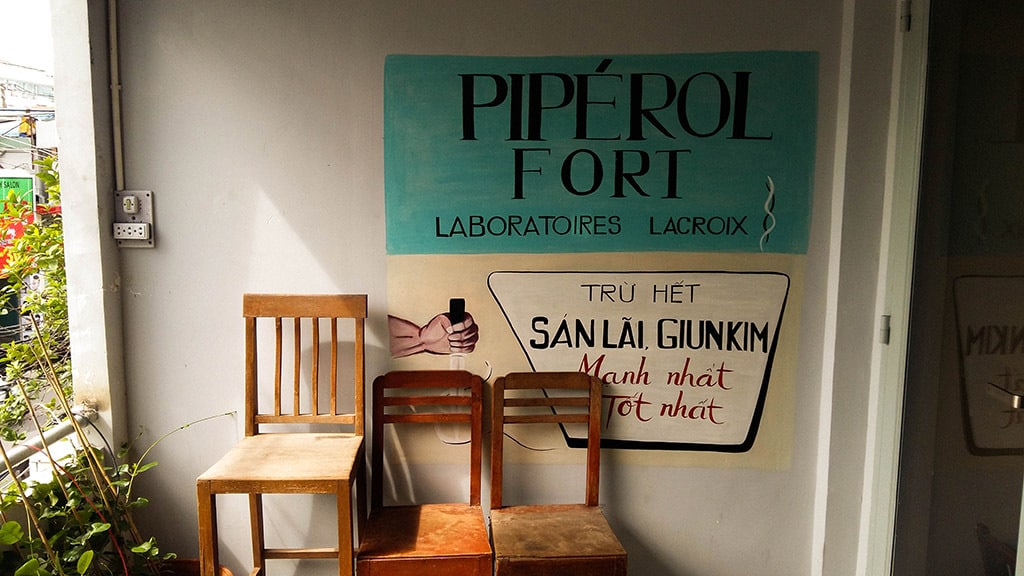 PIPÉROL
FORT
LABORATOIRES LACROIX
TRỪ HẾT
SÁN LÃI, GIUNKIM
Mạnh nhất
Tốt nhất
SALON